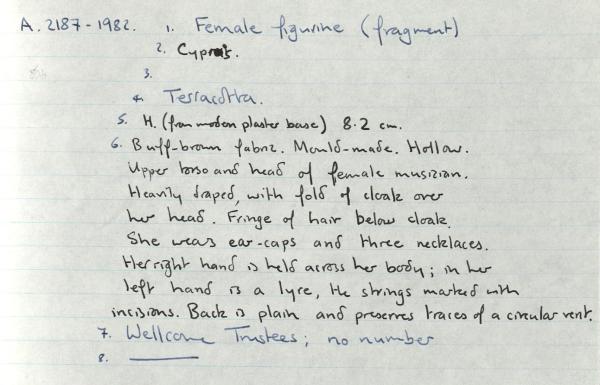 A. 2187-1982. 1. Female figurine (fragment)
2. Cyprus.
3.
4. Terracotta.
5. H. (from modern plaster base) 8.2 cm.
6. Buff-brown fabric. Mould-made. Hollow.
Upper torso and head of female musician.
Heavily draped, with fold of cloak over
her head. Fringe of hair below cloak.
She wears ear-caps and three necklaces.
Her right hand is held across her body; in her
left hand is a lyre, the strings marked with
incisions. Back is plain and preserves traces of a circular vent.
7. Wellcome Trustees; no number
8. ———